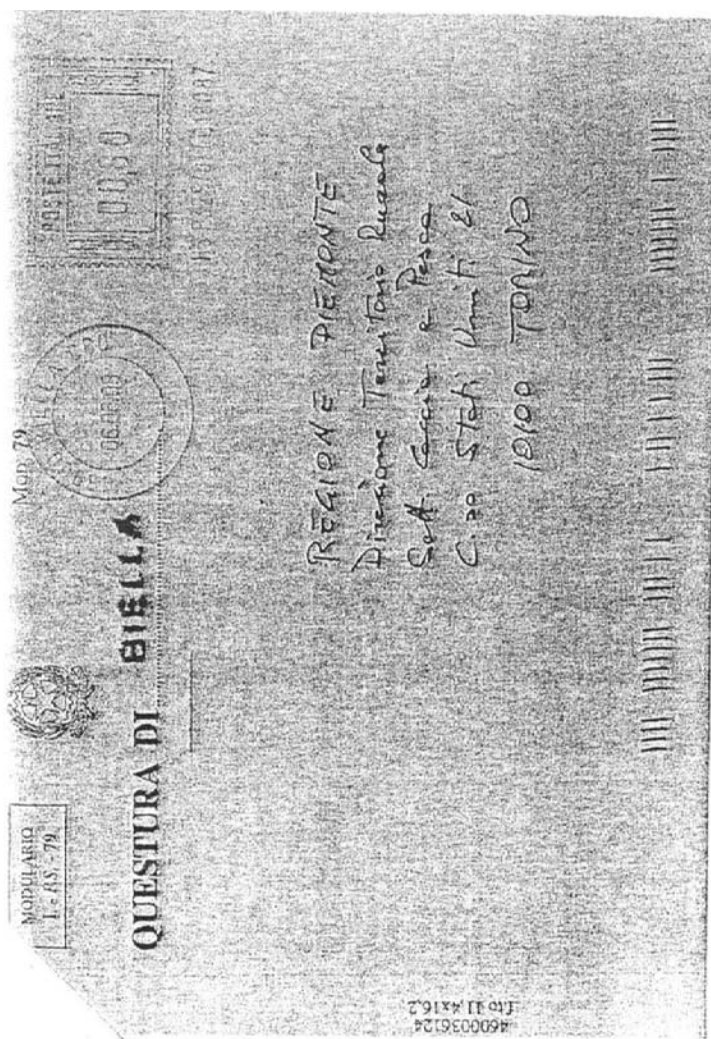 MODULARIO
I. e P.S. - 79
Mod. 79
QUESTURA DI BIELLA
POSTE ITALIANE
00,80
REGIONE PIEMONTE
Direzione Territorio Rurale
Sett. Caccia e Pesca
C.so Stati Uniti 21
10100 TORINO
4600036124
f.to 11,4x16,2